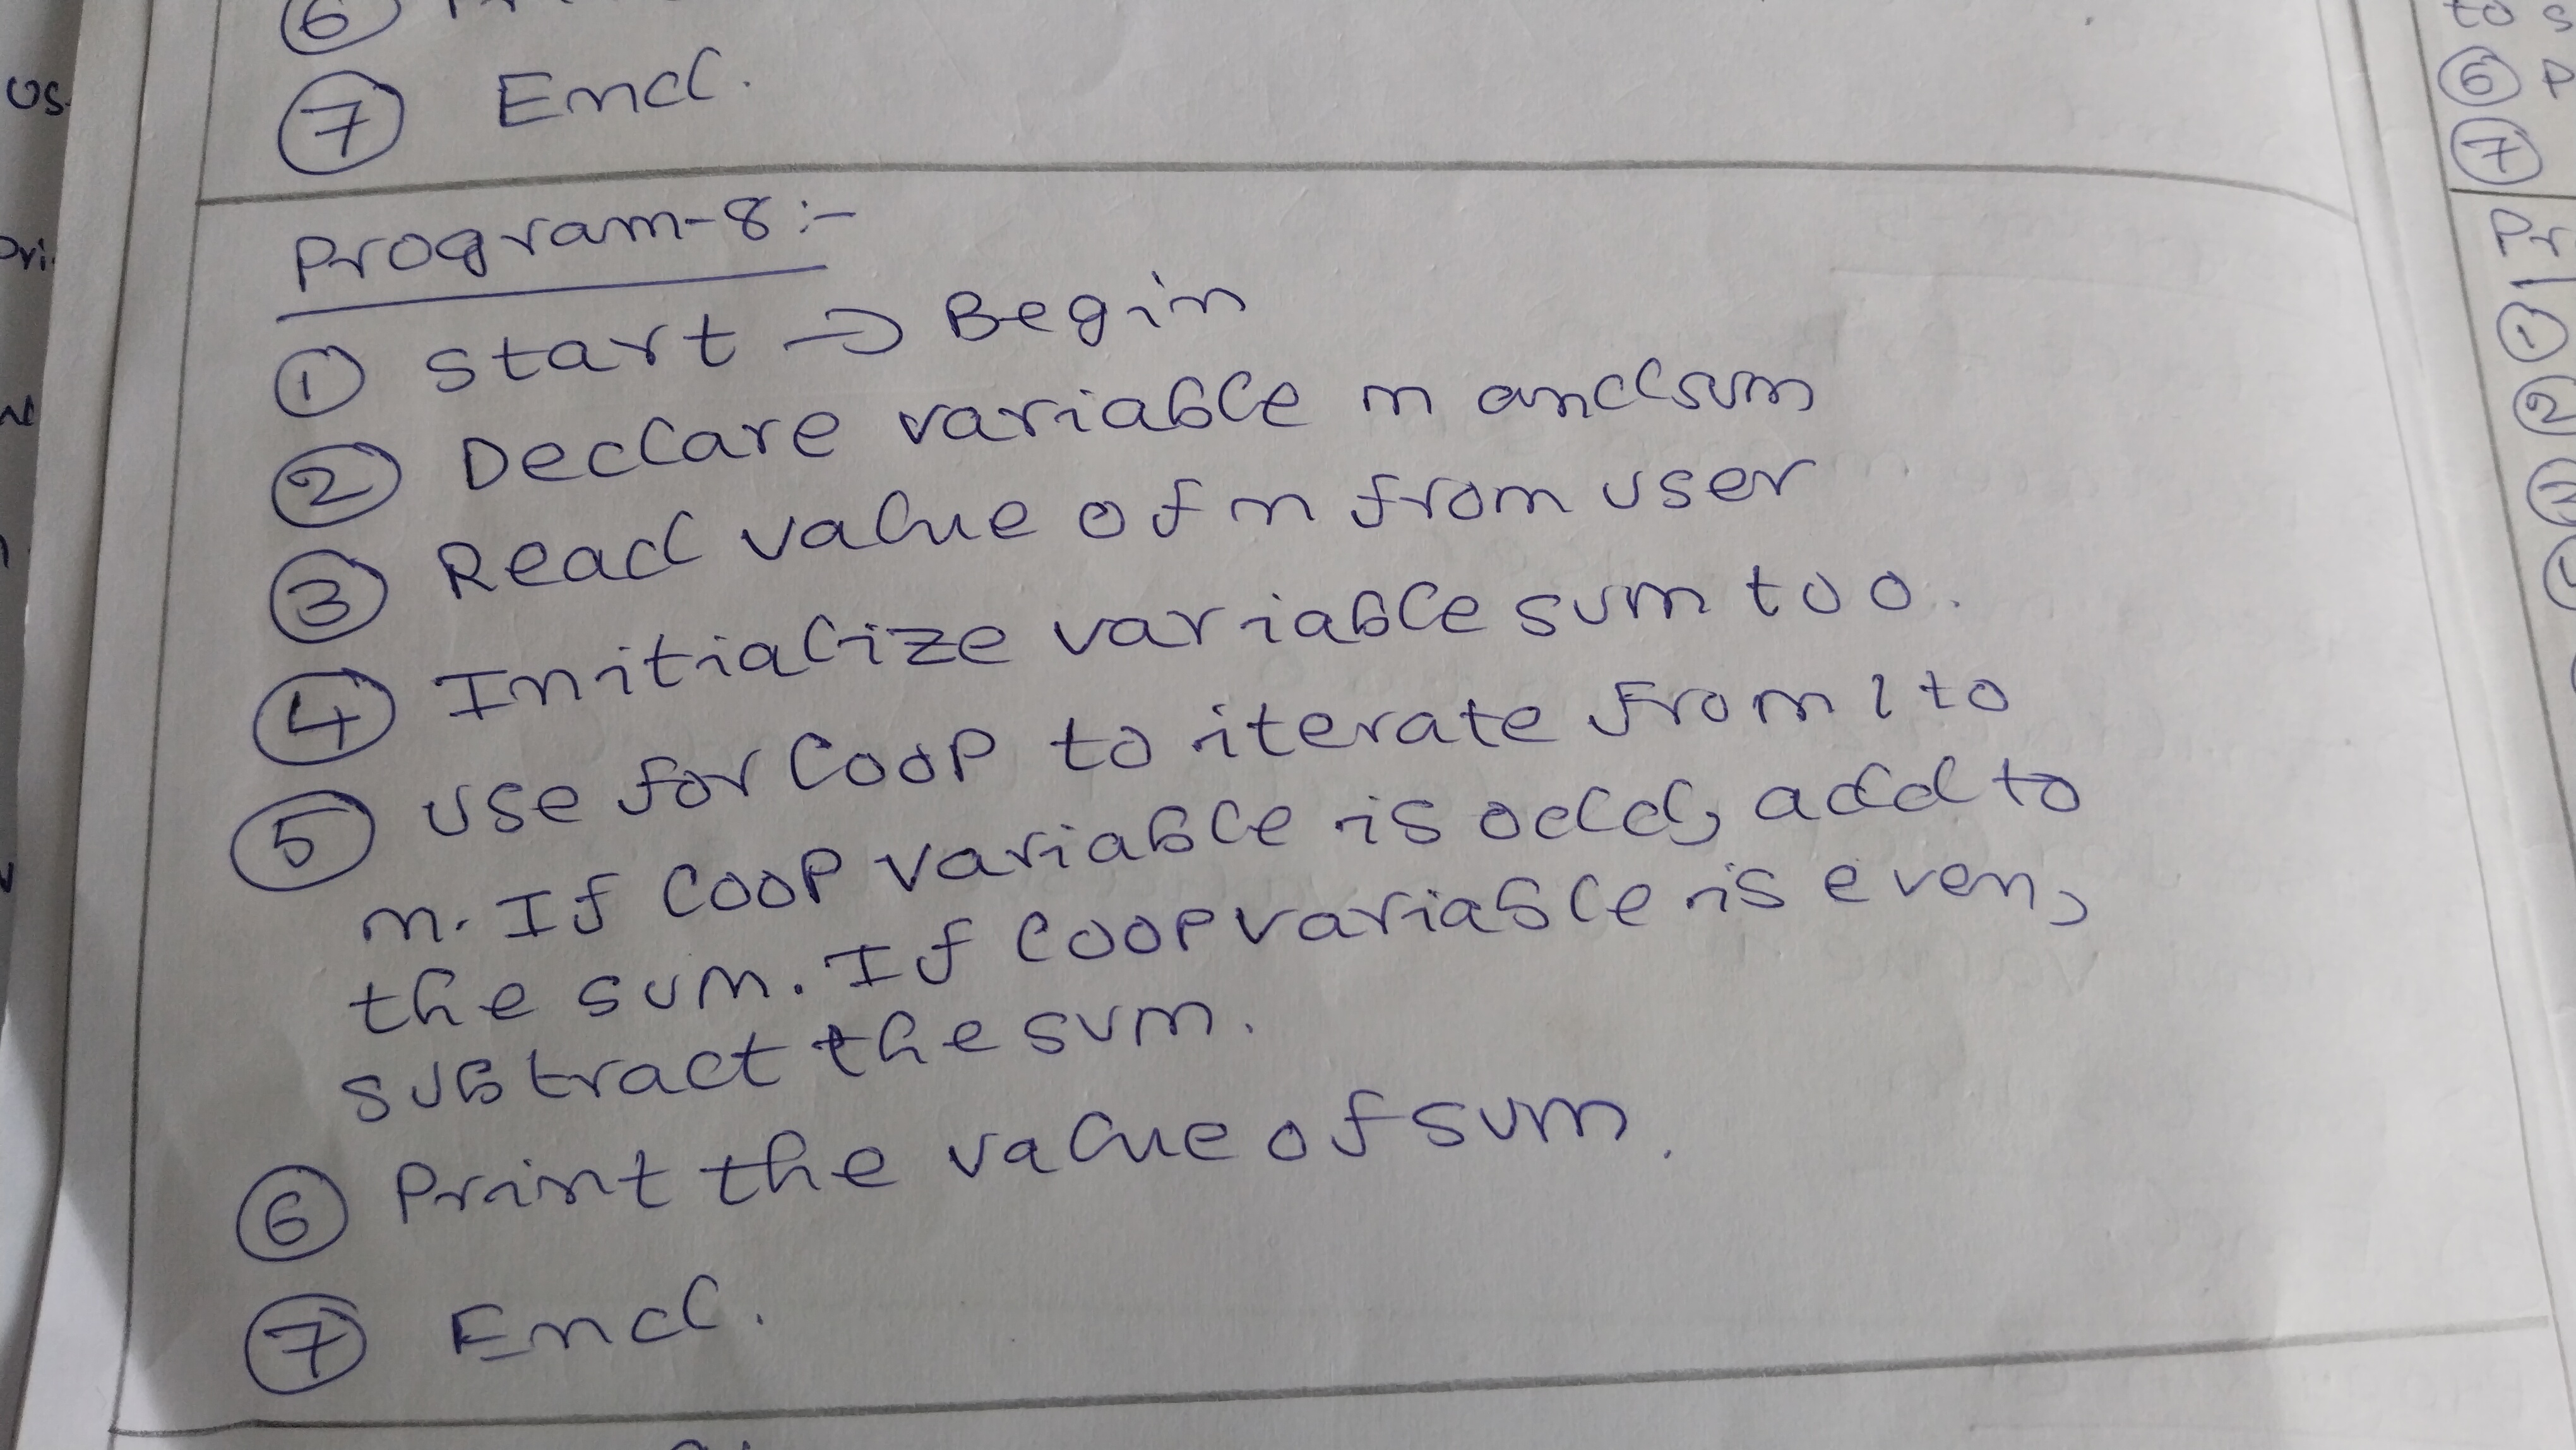 6
7 End.
Program-8:-
1 start → Begin
2 Declare variable n and sum
3 Read value of n from user
4 Initialize variable sum to 0.
5 use for loop to iterate from 1 to
n. If loop variable is odd, add to
the sum. If loop variable is even,
subtract the sum.
6 Print the value of sum.
7 End.
us
Pri
to s
6 P
7
Pr
1
2
3